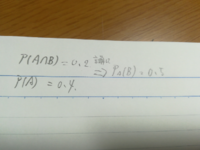 P(A∩B) = 0.2 ⇒ P_A(B) = 0.5
P(A) = 0.4.